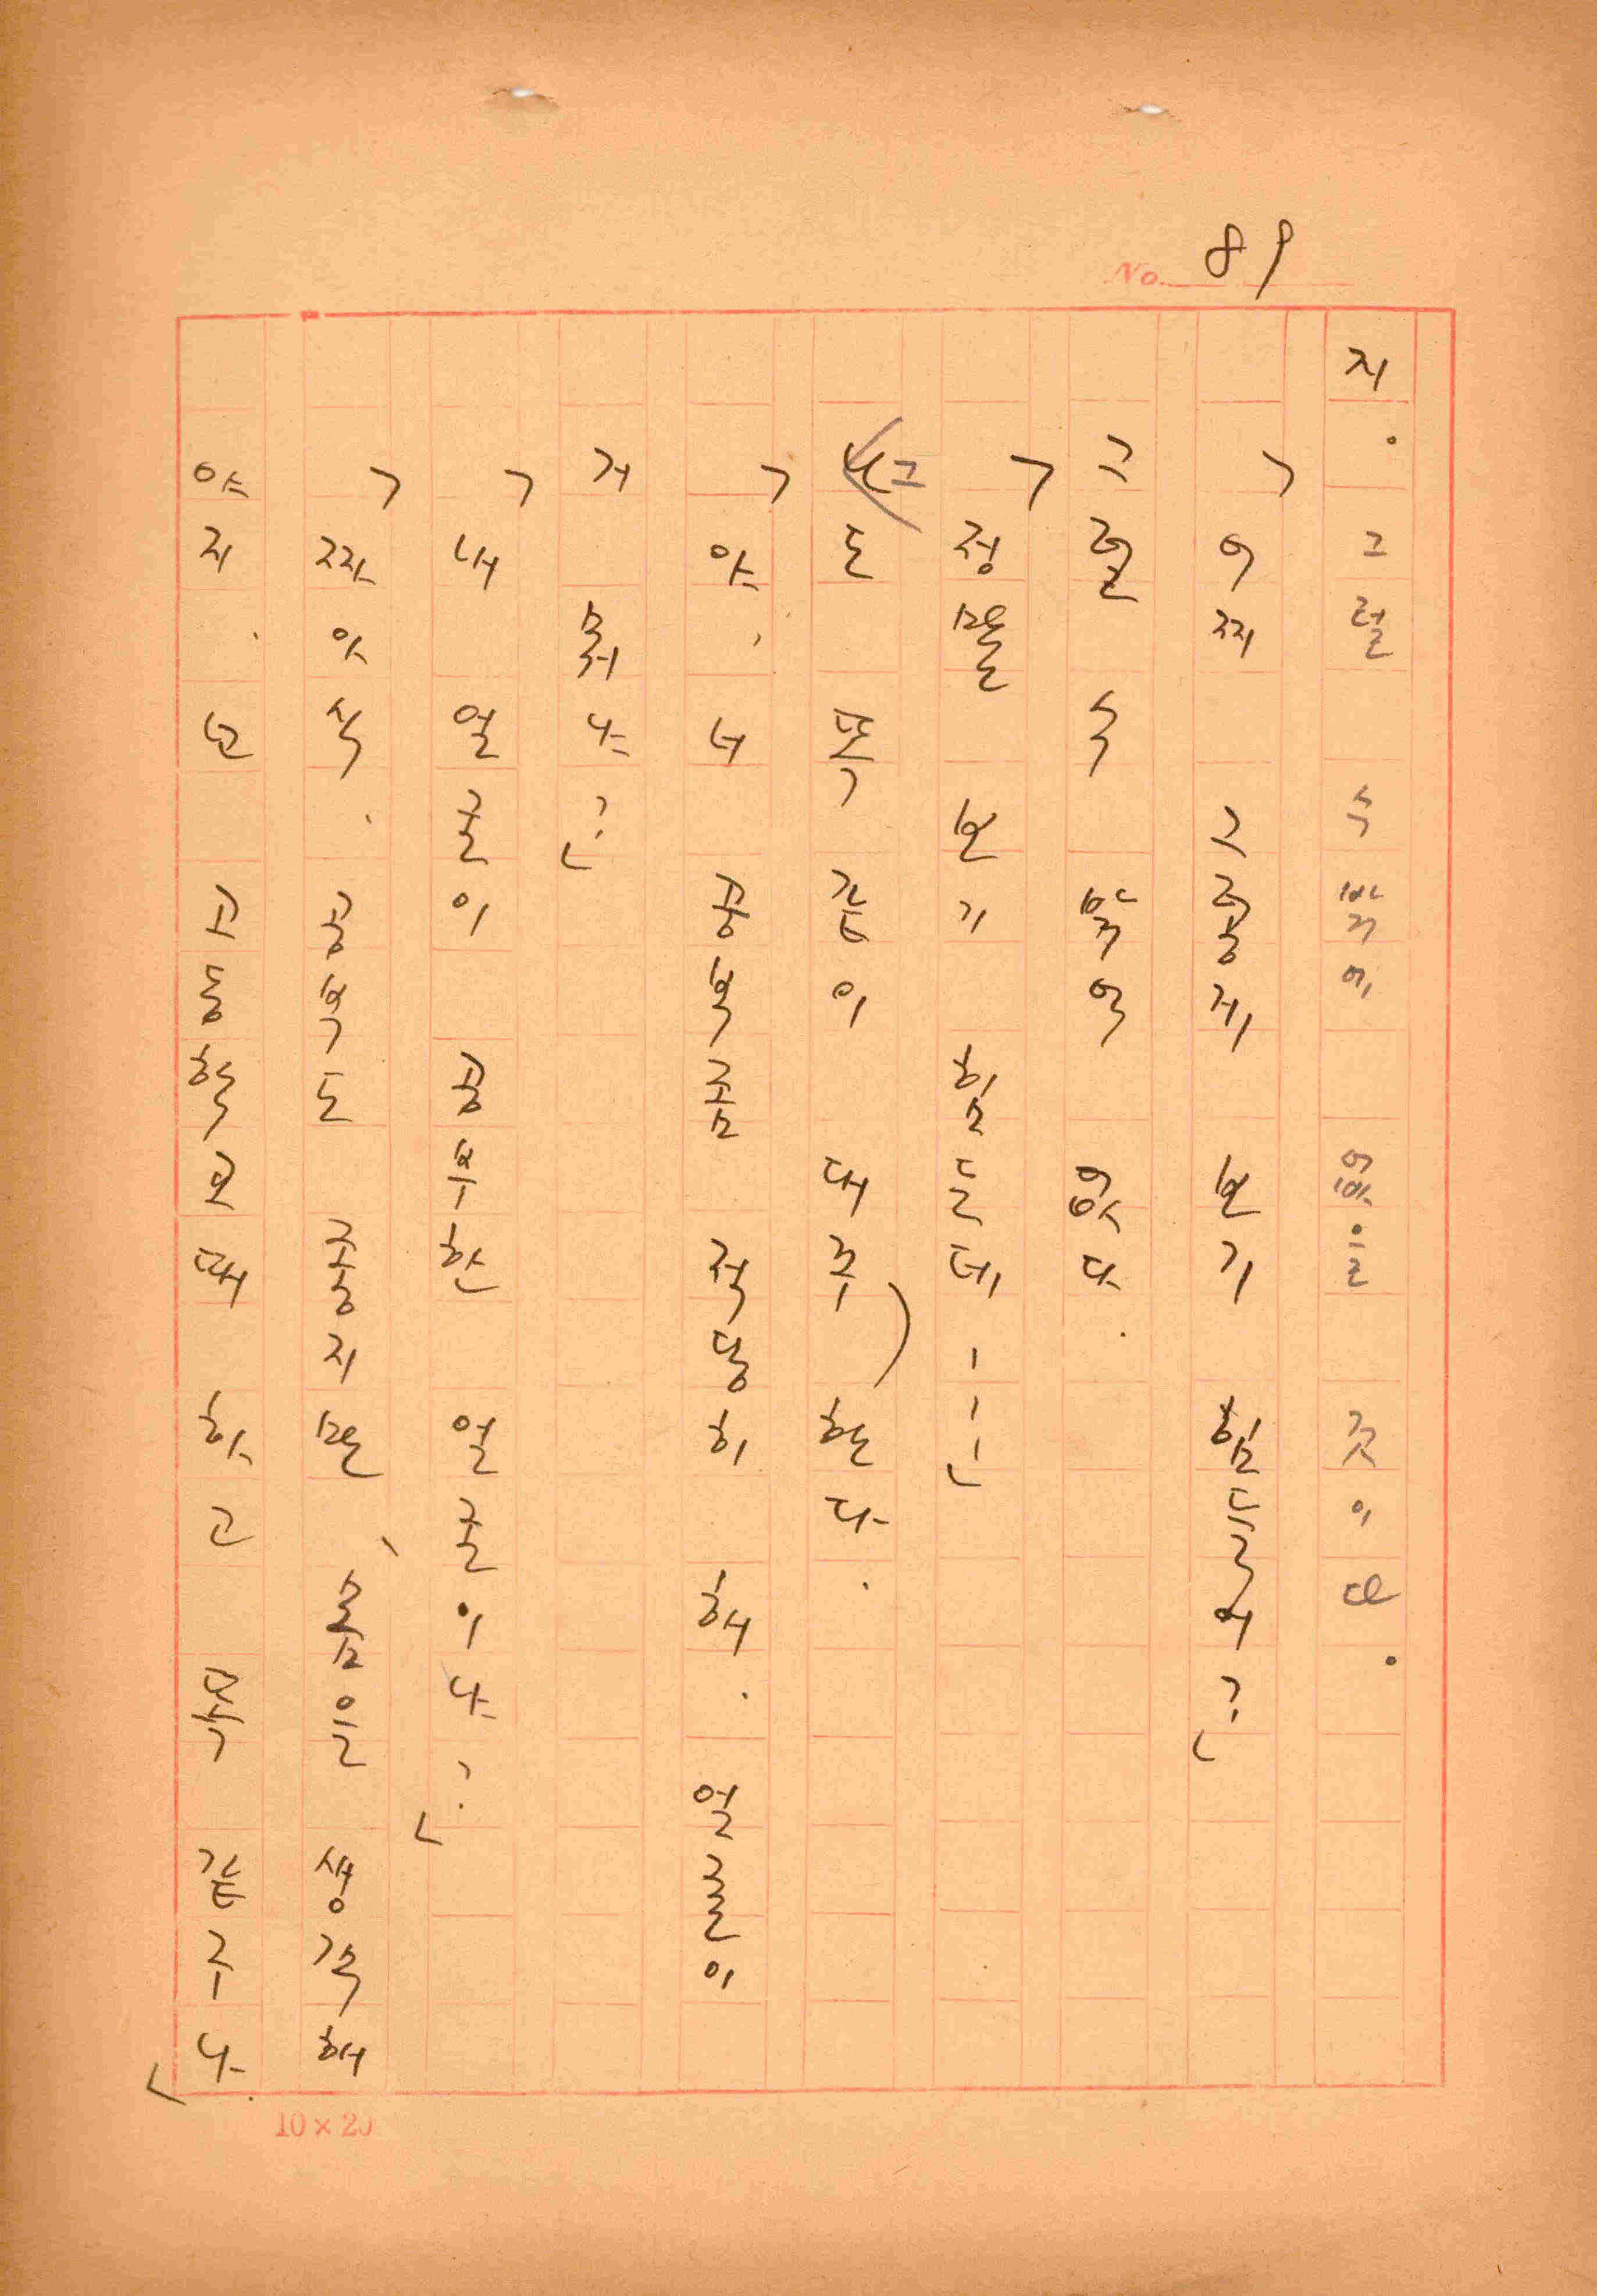 지. 그럴 수밖에 없을 것이다.
「어찌 그렇게 보기 힘들어?」
그럴 수 밖에 없다.
「정말 보기 힘든데---」
그도 똑같이 대꾸한다.
「야, 너 공부좀 적당히 해. 얼굴이
거 뭐냐?」
「내 얼굴이 공부한 얼굴이냐?」
「짜아식. 공부도 좋지만, 몸은 생각해
야지. 넌 고등학교때 하고 꼭 같구나.」
No. 89
10×20